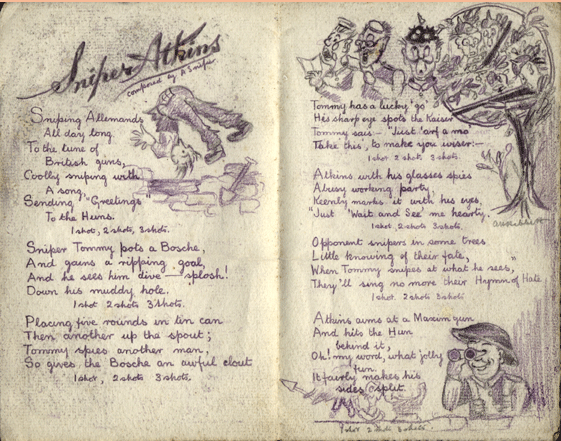 Sniper Atkins
composed by A Sniper
Sniping Allemands
All day long.
To the tune of
British guns,
Coolly sniping with
A song,
Sending "Greetings"
To the Huns.
1 shot, 2 shots, 3 shots.
Sniper Tommy pots a Bosche,
And gains a ripping goal,
And he sees him dive — splosh!
Down his muddy hole.
1 shot 2 shots 3 shots.
Placing five rounds in tin can
Then another up the spout;
Tommy spies another man,
So gives the Bosche an awful clout
1 shot, 2 shots 3 shots.
Tommy has a lucky 'go'
His sharp eye spots the Kaiser
Tommy says:- "Just 'arf a mo
Take this, to make you wiser:-
1 shot 2 shots 3 shots
Atkins with his glasses spies
A busy working party;
Keenly marks it with his eyes,
"Just 'Wait and See' me hearty.
1 shot, 2 shots, 3 shots.
Opponent snipers in some trees
Little knowing of their fate,
When Tommy snipes at what he sees,
They'll sing no more their "Hymn of Hate
1 shot. 2 shots 3 shots
Atkins aims at a Maxim gun
And hits the Hun
behind it,
Oh! my word, what jolly
fun.
It fairly makes his
sides split.
1 shot 2 shots 3 shots.